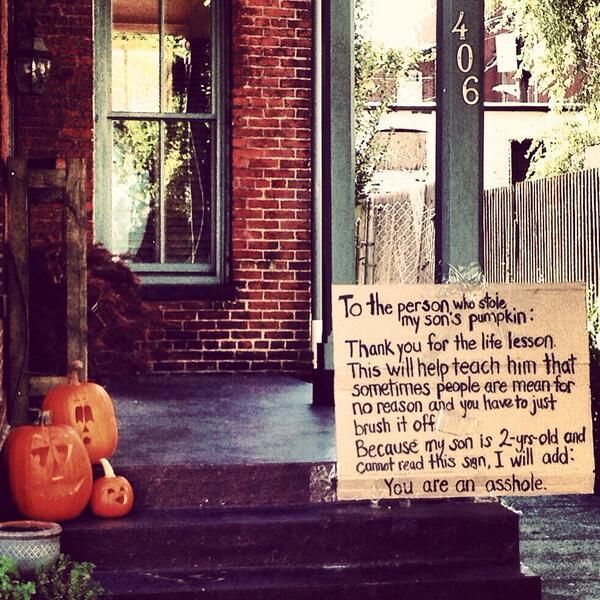 406
To the person who stole
my son's pumpkin:
Thank you for the life lesson.
This will help teach him that
sometimes people are mean for
no reason and you have to just
brush it off.
Because my son is 2-yrs-old and
cannot read this sign, I will add:
You are an asshole.